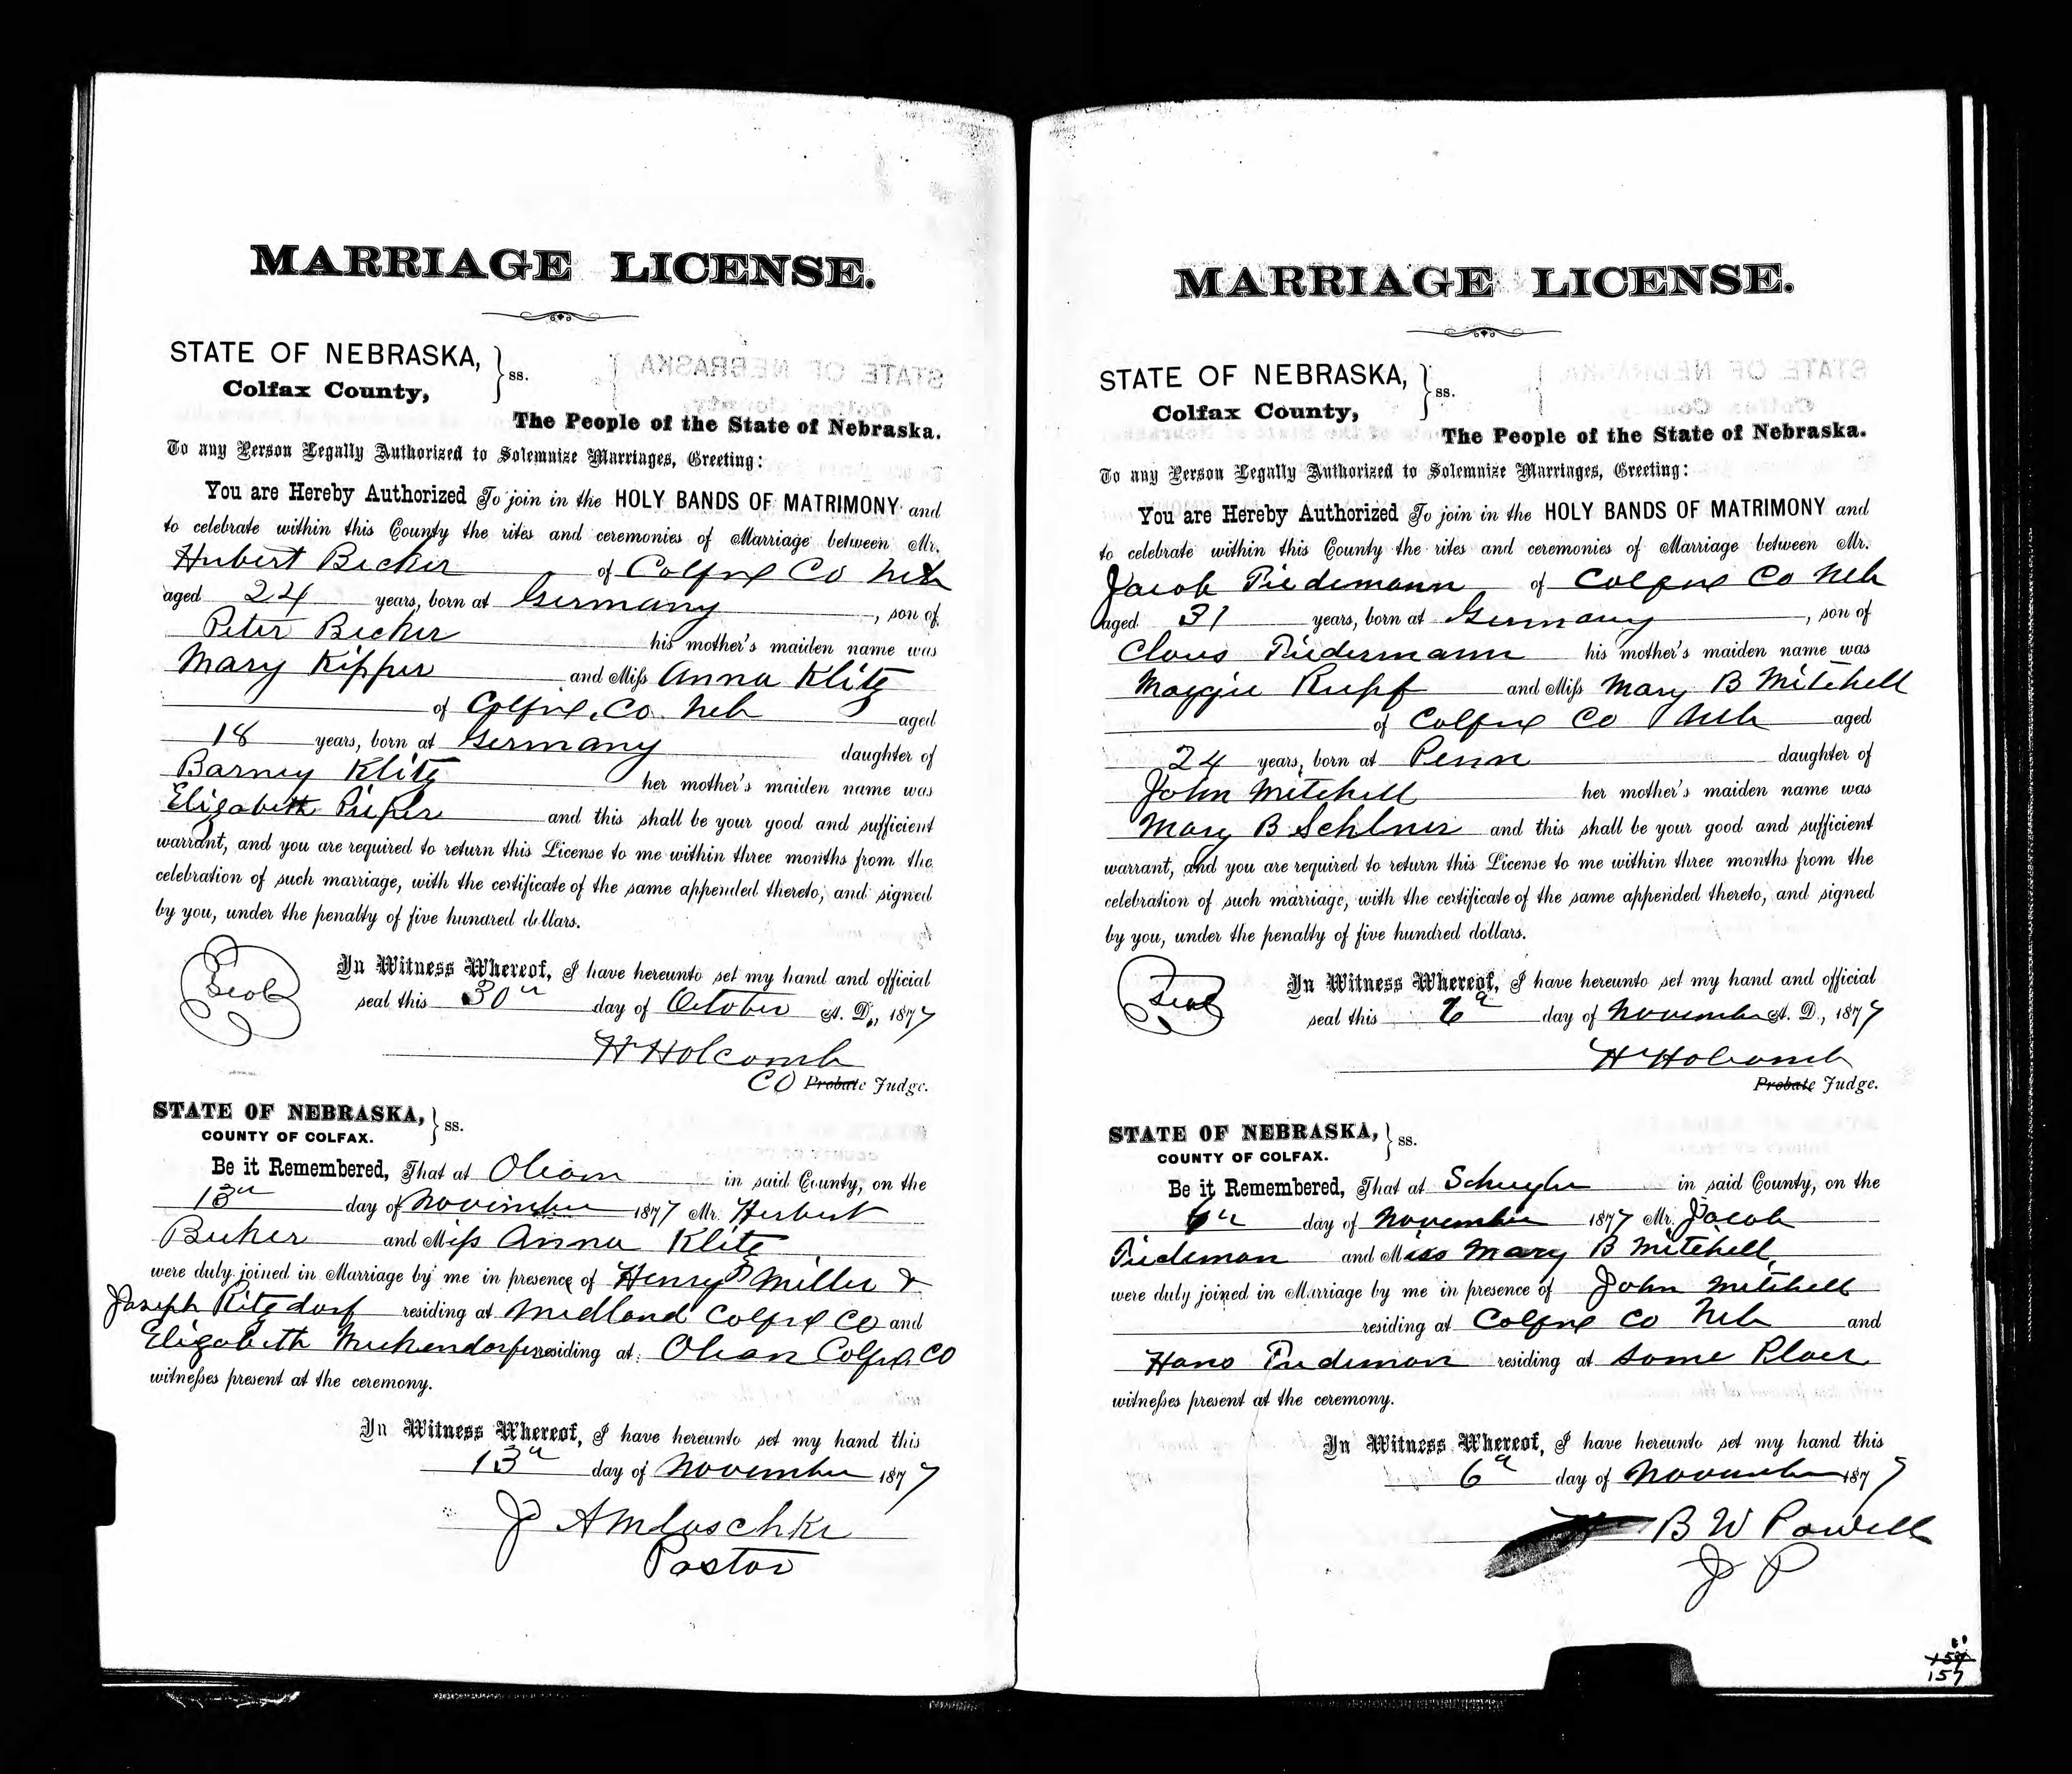 MARRIAGE LICENSE.
STATE OF NEBRASKA, } ss.
Colfax County,
The People of the State of Nebraska.
To any Person Legally Authorized to Solemnize Marriages, Greeting:
You are Hereby Authorized To join in the HOLY BANDS OF MATRIMONY and
to celebrate within this County the rites and ceremonies of Marriage between Mr.
Hubert Becker of Colfax Co Neb
aged 24 years, born at Germany, son of
Peter Becker his mother's maiden name was
Mary Kipper and Miss Anna Klitz
of Colfax Co. Neb aged
18 years, born at Germany daughter of
Barney Klitz her mother's maiden name was
Elizabeth Piefer and this shall be your good and sufficient
warrant, and you are required to return this License to me within three months from the
celebration of such marriage, with the certificate of the same appended thereto, and signed
by you, under the penalty of five hundred dollars.
Seal
In Witness Whereof, I have hereunto set my hand and official
seal this 30th day of October A. D., 1877
H Holcomb
CO Probate Judge.
STATE OF NEBRASKA, } ss.
COUNTY OF COLFAX.
Be it Remembered, That at Olean in said County, on the
13th day of November 1877 Mr. Herbert
Becker and Miss Anna Klitz
were duly joined in Marriage by me in presence of Henry Miller &
Joseph Ritzdorf residing at Midland Colfax Co and
Elizabeth residing at Olean Colfax Co
witnesses present at the ceremony.
In Witness Whereof, I have hereunto set my hand this
13th day of November 1877
J
Pastor
MARRIAGE LICENSE.
STATE OF NEBRASKA, } ss.
Colfax County,
The People of the State of Nebraska.
To any Person Legally Authorized to Solemnize Marriages, Greeting:
You are Hereby Authorized To join in the HOLY BANDS OF MATRIMONY and
to celebrate within this County the rites and ceremonies of Marriage between Mr.
Jacob Tiedemann of Colfax Co Neb
aged 31 years, born at Germany, son of
Claus Tiedermann his mother's maiden name was
Maggie Rupf and Miss Mary B Mitchell
of Colfax Co Neb aged
24 years, born at Penn daughter of
John Mitchell her mother's maiden name was
Mary B and this shall be your good and sufficient
warrant, and you are required to return this License to me within three months from the
celebration of such marriage, with the certificate of the same appended thereto, and signed
by you, under the penalty of five hundred dollars.
Seal
In Witness Whereof, I have hereunto set my hand and official
seal this 6th day of November A. D., 1877
H Holcomb
Probate Judge.
STATE OF NEBRASKA, } ss.
COUNTY OF COLFAX.
Be it Remembered, That at Schuyler in said County, on the
6th day of November 1877 Mr. Jacob
Tiedeman and Miss Mary B Mitchell
were duly joined in Marriage by me in presence of John Mitchell
residing at Colfax Co Neb and
Hans Tiedeman residing at same Place
witnesses present at the ceremony.
In Witness Whereof, I have hereunto set my hand this
6th day of November 1877
B W Powell
J P
157